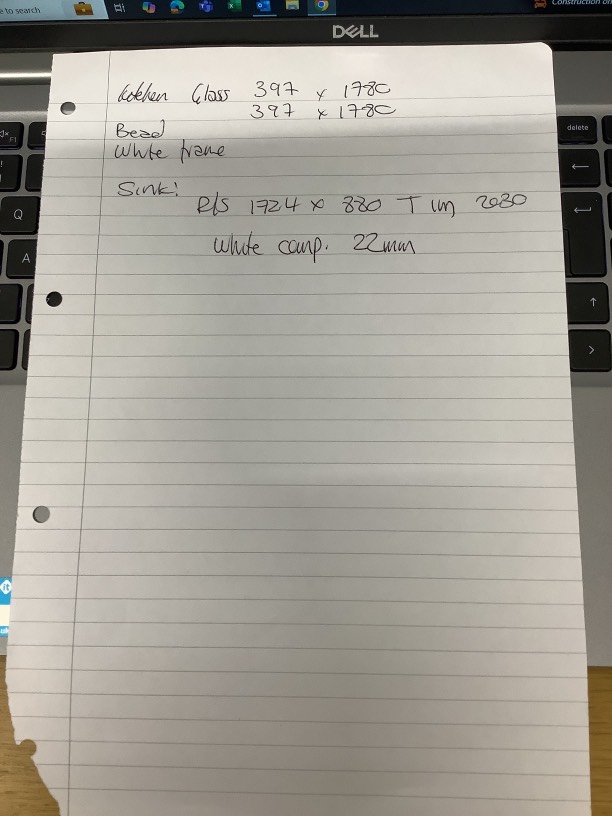 e to search
Construction on
DELL
Kitchen Glass 397 x 1780
397 x 1780
Bead
White frame
Sink:
R/S 1724 x 880 T 1m 2030
White comp. 22mm
F1
Q
A
delete
it